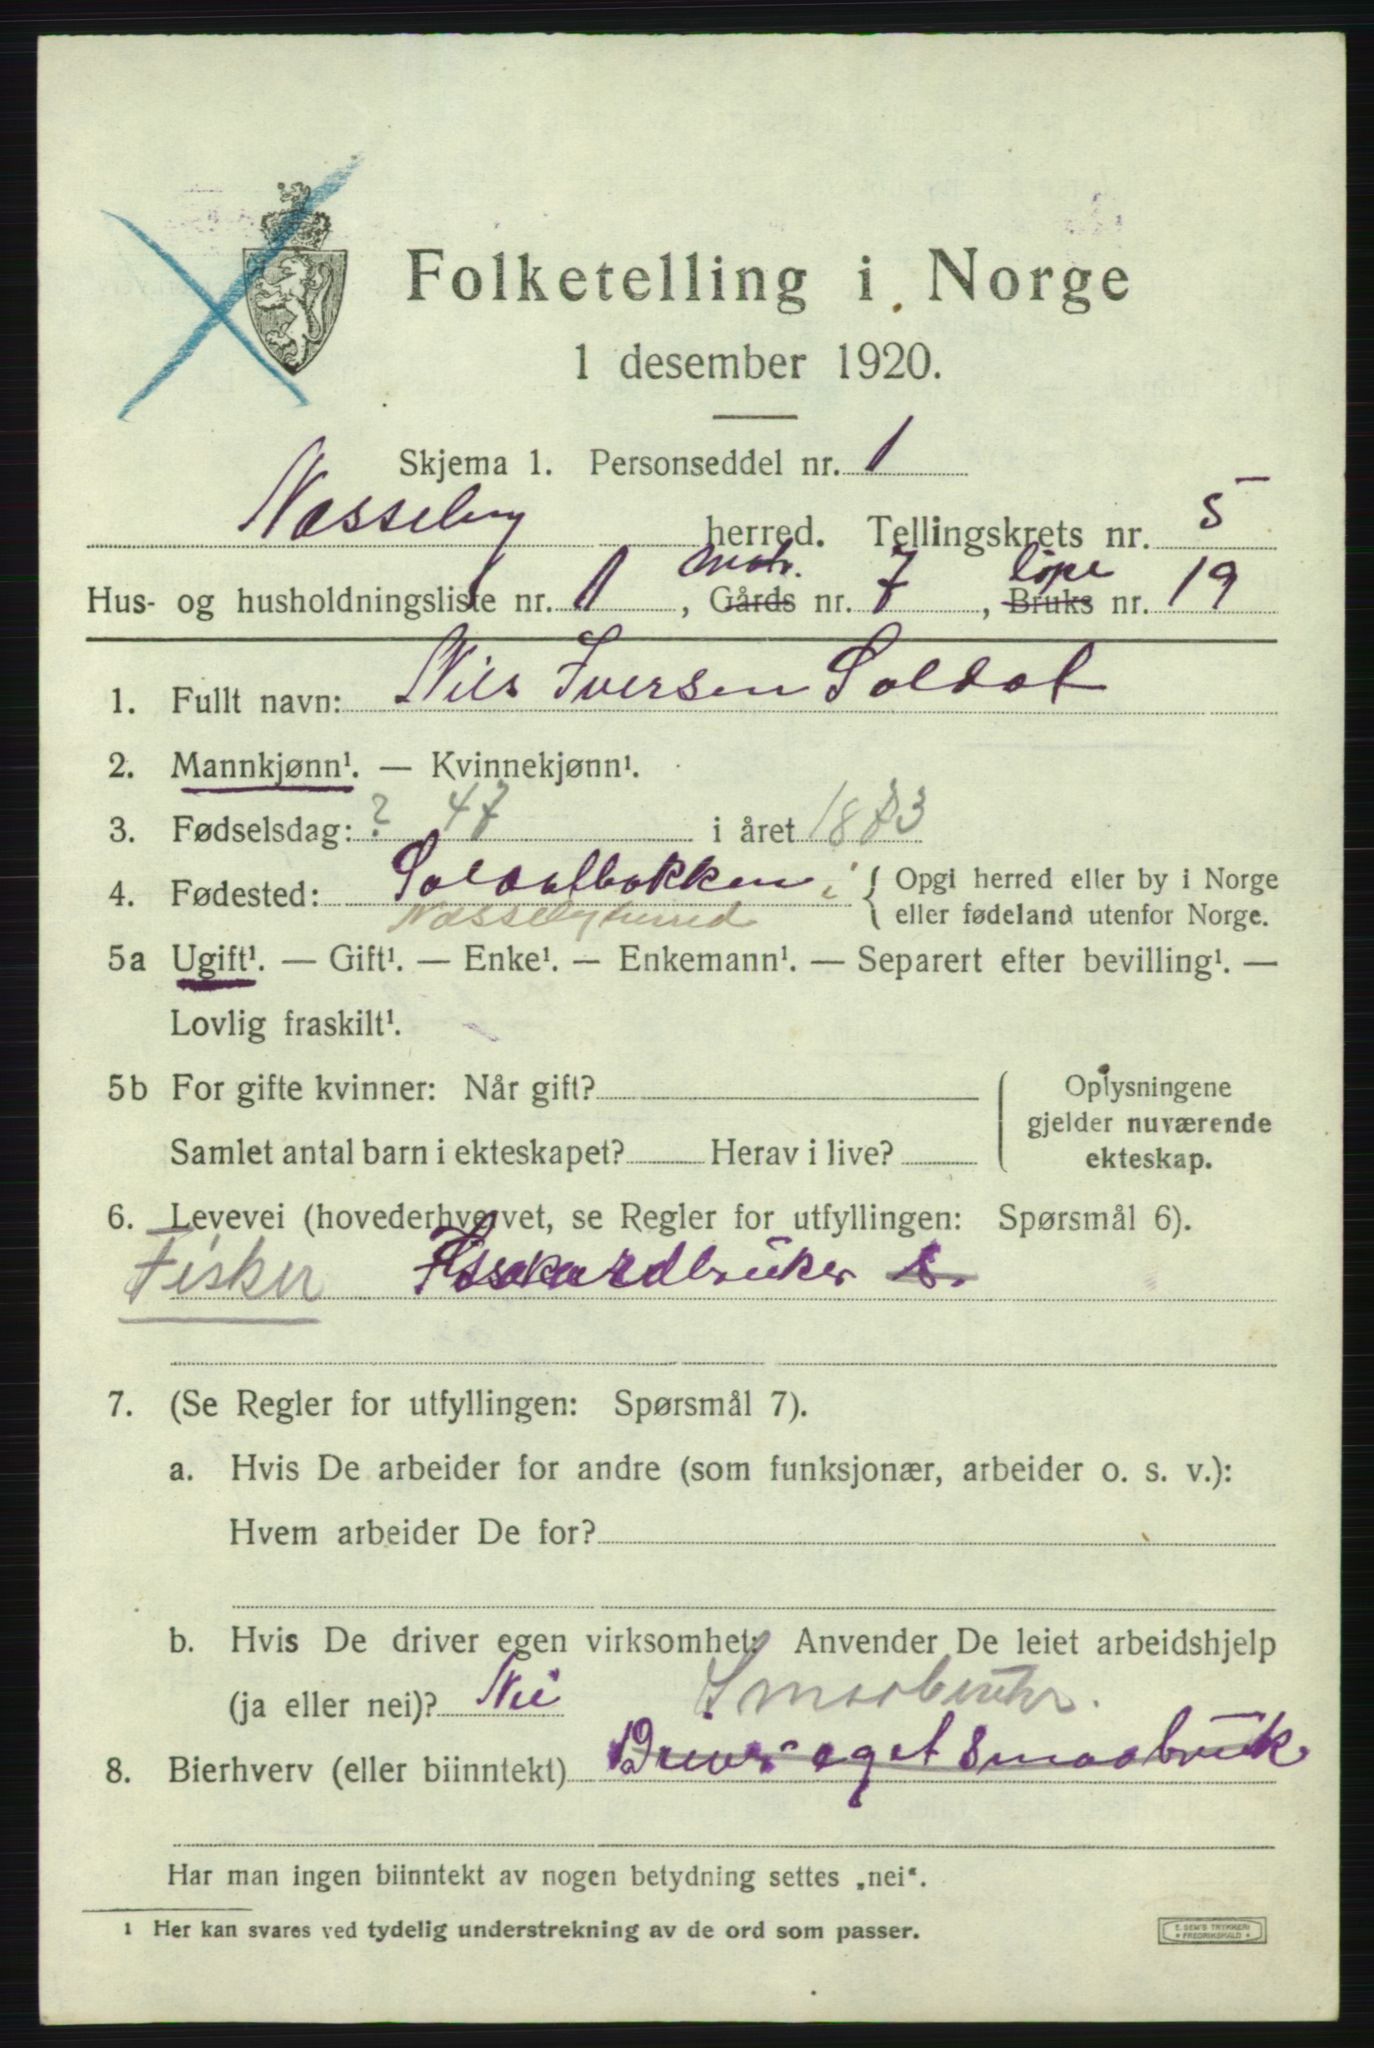 Folketelling i Norge
1 desember 1920.
Skjema 1. Personseddel nr. 1
Næsseby herred. Tellingskrets nr. 5
matr. løpe
Hus- og husholdningsliste nr. 1, Gårds nr. 7, Bruks nr. 19
1. Fullt navn: Nils Iversen Soldat
2. Mannkjønn¹. — Kvinnekjønn¹.
3. Fødselsdag: ? 47 i året 1873
4. Fødested: Soldatbakken i { Opgi herred eller by i Norge
Næsseby herred eller fødeland utenfor Norge.
5a Ugift¹. — Gift¹. — Enke¹. — Enkemann¹. — Separert efter bevilling¹. —
Lovlig fraskilt¹.
5b For gifte kvinner: Når gift? Oplysningene
gjelder nuværende
Samlet antal barn i ekteskapet? Herav i live? ekteskap.
6. Levevei (hovederhvervet, se Regler for utfyllingen: Spørsmål 6).
Fisker
7. (Se Regler for utfyllingen: Spørsmål 7).
a. Hvis De arbeider for andre (som funksjonær, arbeider o. s. v.):
Hvem arbeider De for?
b. Hvis De driver egen virksomhet: Anvender De leiet arbeidshjelp
(ja eller nei)? Nei Smaabruker.
8. Bierhverv (eller biinntekt) Driver eget Smaabruk
Har man ingen biinntekt av nogen betydning settes „nei“.
1 Her kan svares ved tydelig understrekning av de ord som passer.
E. SEM'S TRYKKERI
* FREDRIKSHALD *